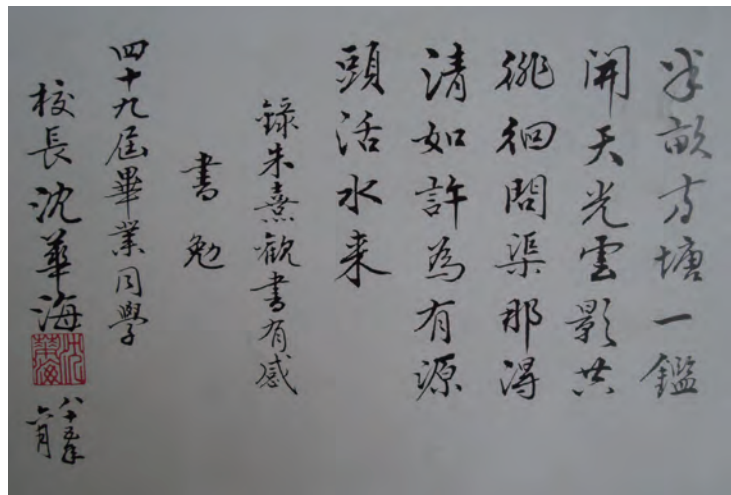 半畝方塘一鑑
開天光雲影共
徘徊問渠那得
清如許為有源
頭活水来
錄朱熹觀書有感
書勉
四十九屆畢業同學
校長沈華海
沈華海
八十五年
六月